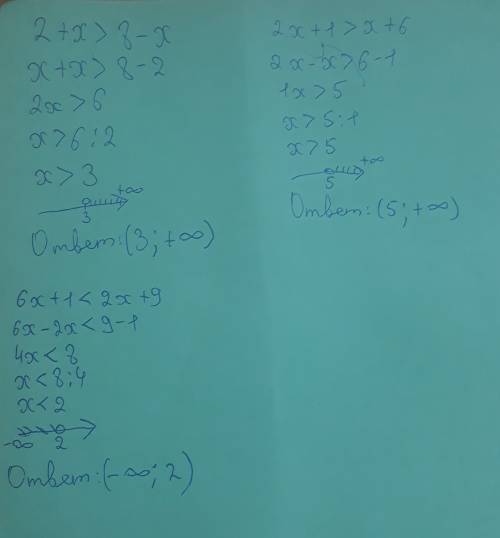 2+x>8-x
x+x>8-2
2x>6
x>6:2
x>3
+∞
3
Ответ:(3;+∞)
2x+1>x+6
2x-x>6-1
1x>5
x>5:1
x>5
+∞
5
Ответ:(5;+∞)
6x+1<2x+9
6x-2x<9-1
4x<8
x<8:4
x<2
-∞ 2
Ответ:(-∞;2)